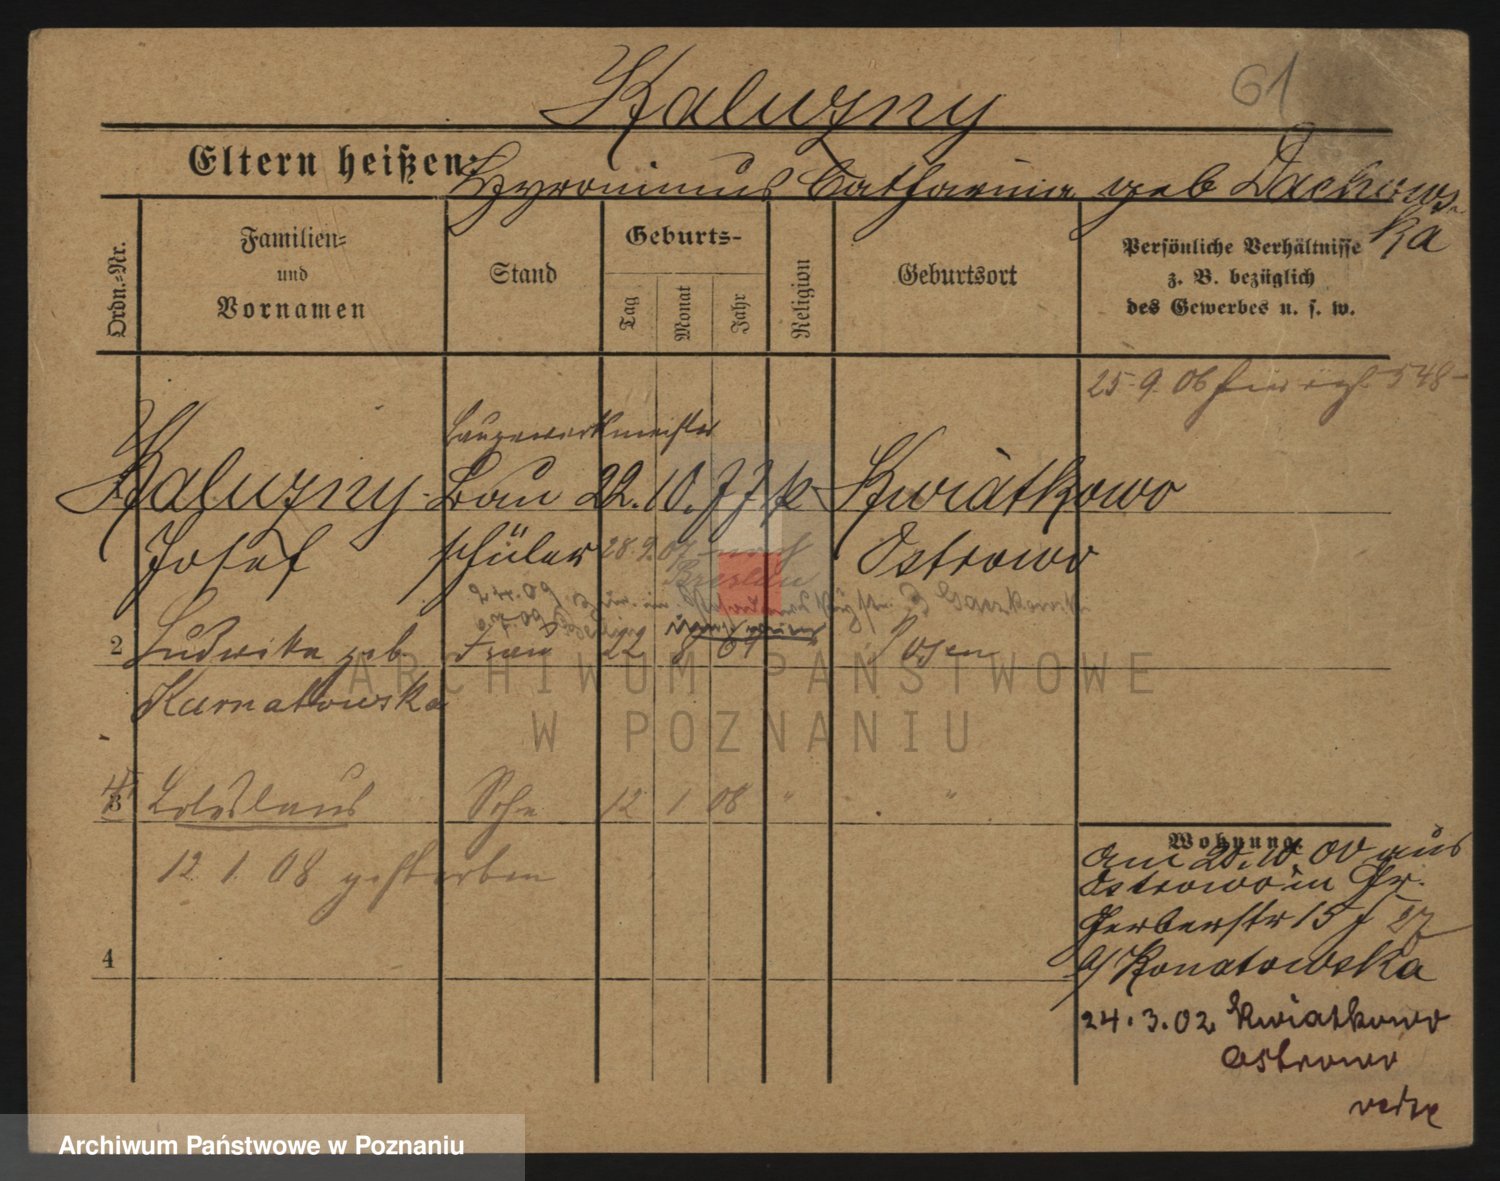 61
Kaluzny
Eltern heißen: Hyronimus Catharina geb Dackows-
ka
Ordn.-Nr.
Familien-
und
Vornamen
Stand
Geburts-
Tag
Monat
Jahr
Religion
Geburtsort
Persönliche Verhältnisse
z. B. bezüglich
des Gewerbes u. s. w.
25. 9. 06 548
Baugewerksmeister
Kaluzny Bau 22. 10. 77 k Kwiatkowo
Josef schüler Ostrowo
28. 9. 07 nach
Breslau
2 Ludwika geb Frau 22 8 Posen
Karnatowska
3 Boleslaus Sohn 12 1 08 " "
12 1 08 gestorben
4
Wohnung.
am 20. 10. 00 aus
Ostrowo in Gr.
Gerberstr 15 27
b/ Konatowska
24. 3. 02 Kwiatkowo
Ostrowo
ARCHIWUM PAŃSTWOWE
W POZNANIU
Archiwum Państwowe w Poznaniu